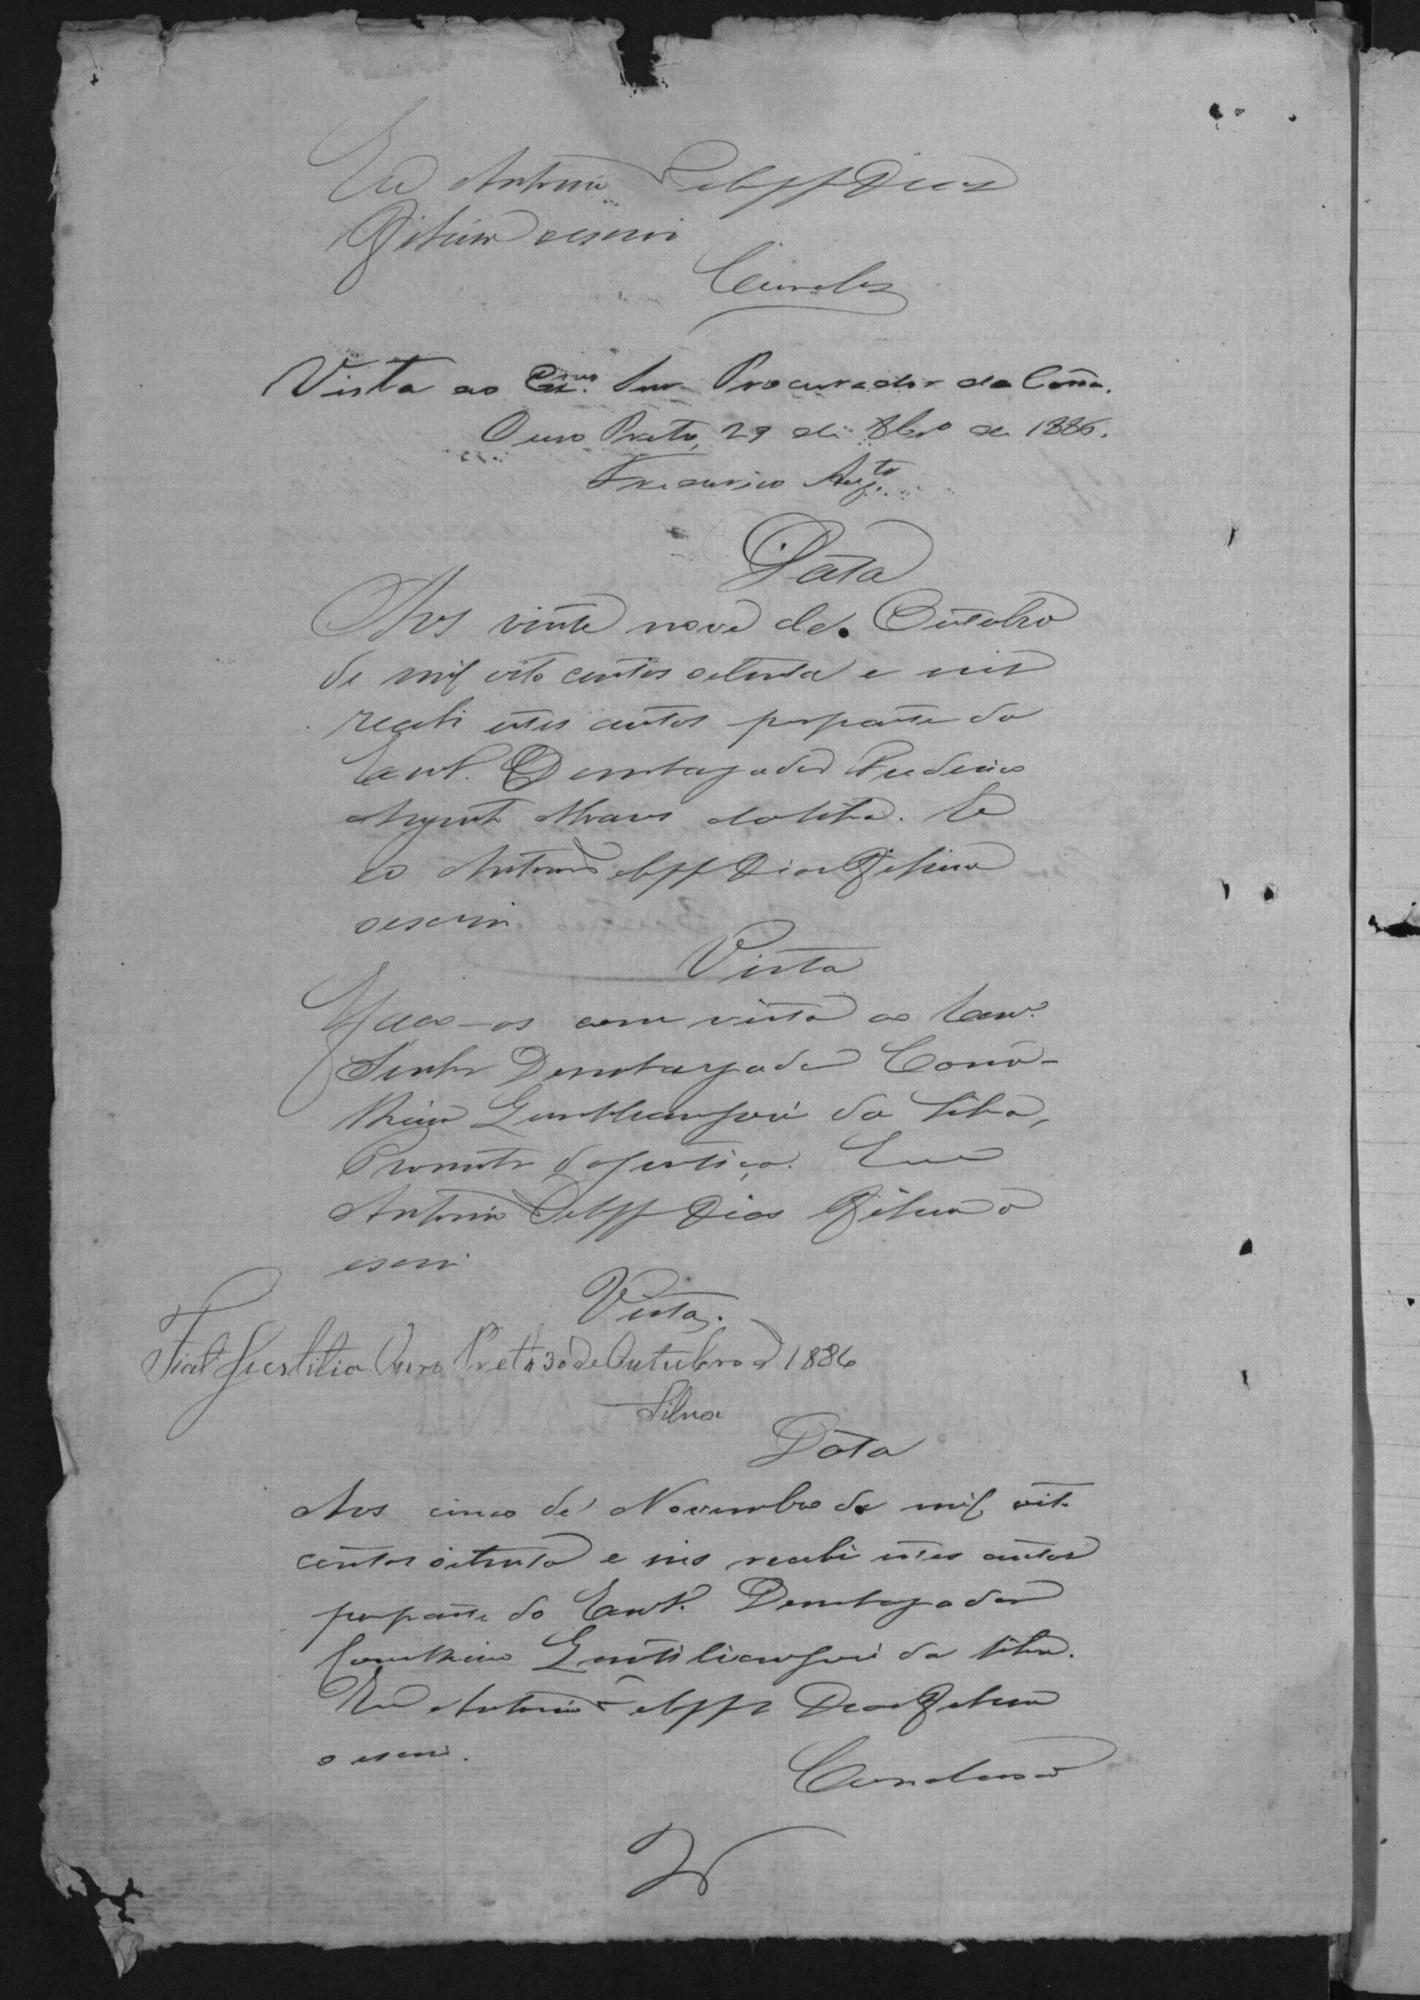 Eu Antonio Dias
o escrivi
Concluz
Vista ao Exmo. Snr. Procurador da Corôa.
Ouro Preto, 29 de 8bro de 1886.
Frederico Augto.
Data
Aos vinte nove de Outubro
de mil oito centos oitenta e seis
recebi estes autos por parte do
Exmo. Desembargador Frederico
Augusto Alvares da Silva. E
eu Antonio Dias
o escrivi.
Vista
Faço-os com vista ao Exmo.
Senhor Desembargador
da Silva,
Promotor da Justiça. Eu
Antonio Dias o
escrivi
Vista.
Fiat Justitia Ouro Preto 30 de Outubro d 1886
Silva
Data
Aos cinco de Novembro de mil oito
centos oitenta e seis recebi estes autos
por parte do Exmo. Desembargador
da Silva.
Eu Antonio Dias
o escrivi.
Conclusão